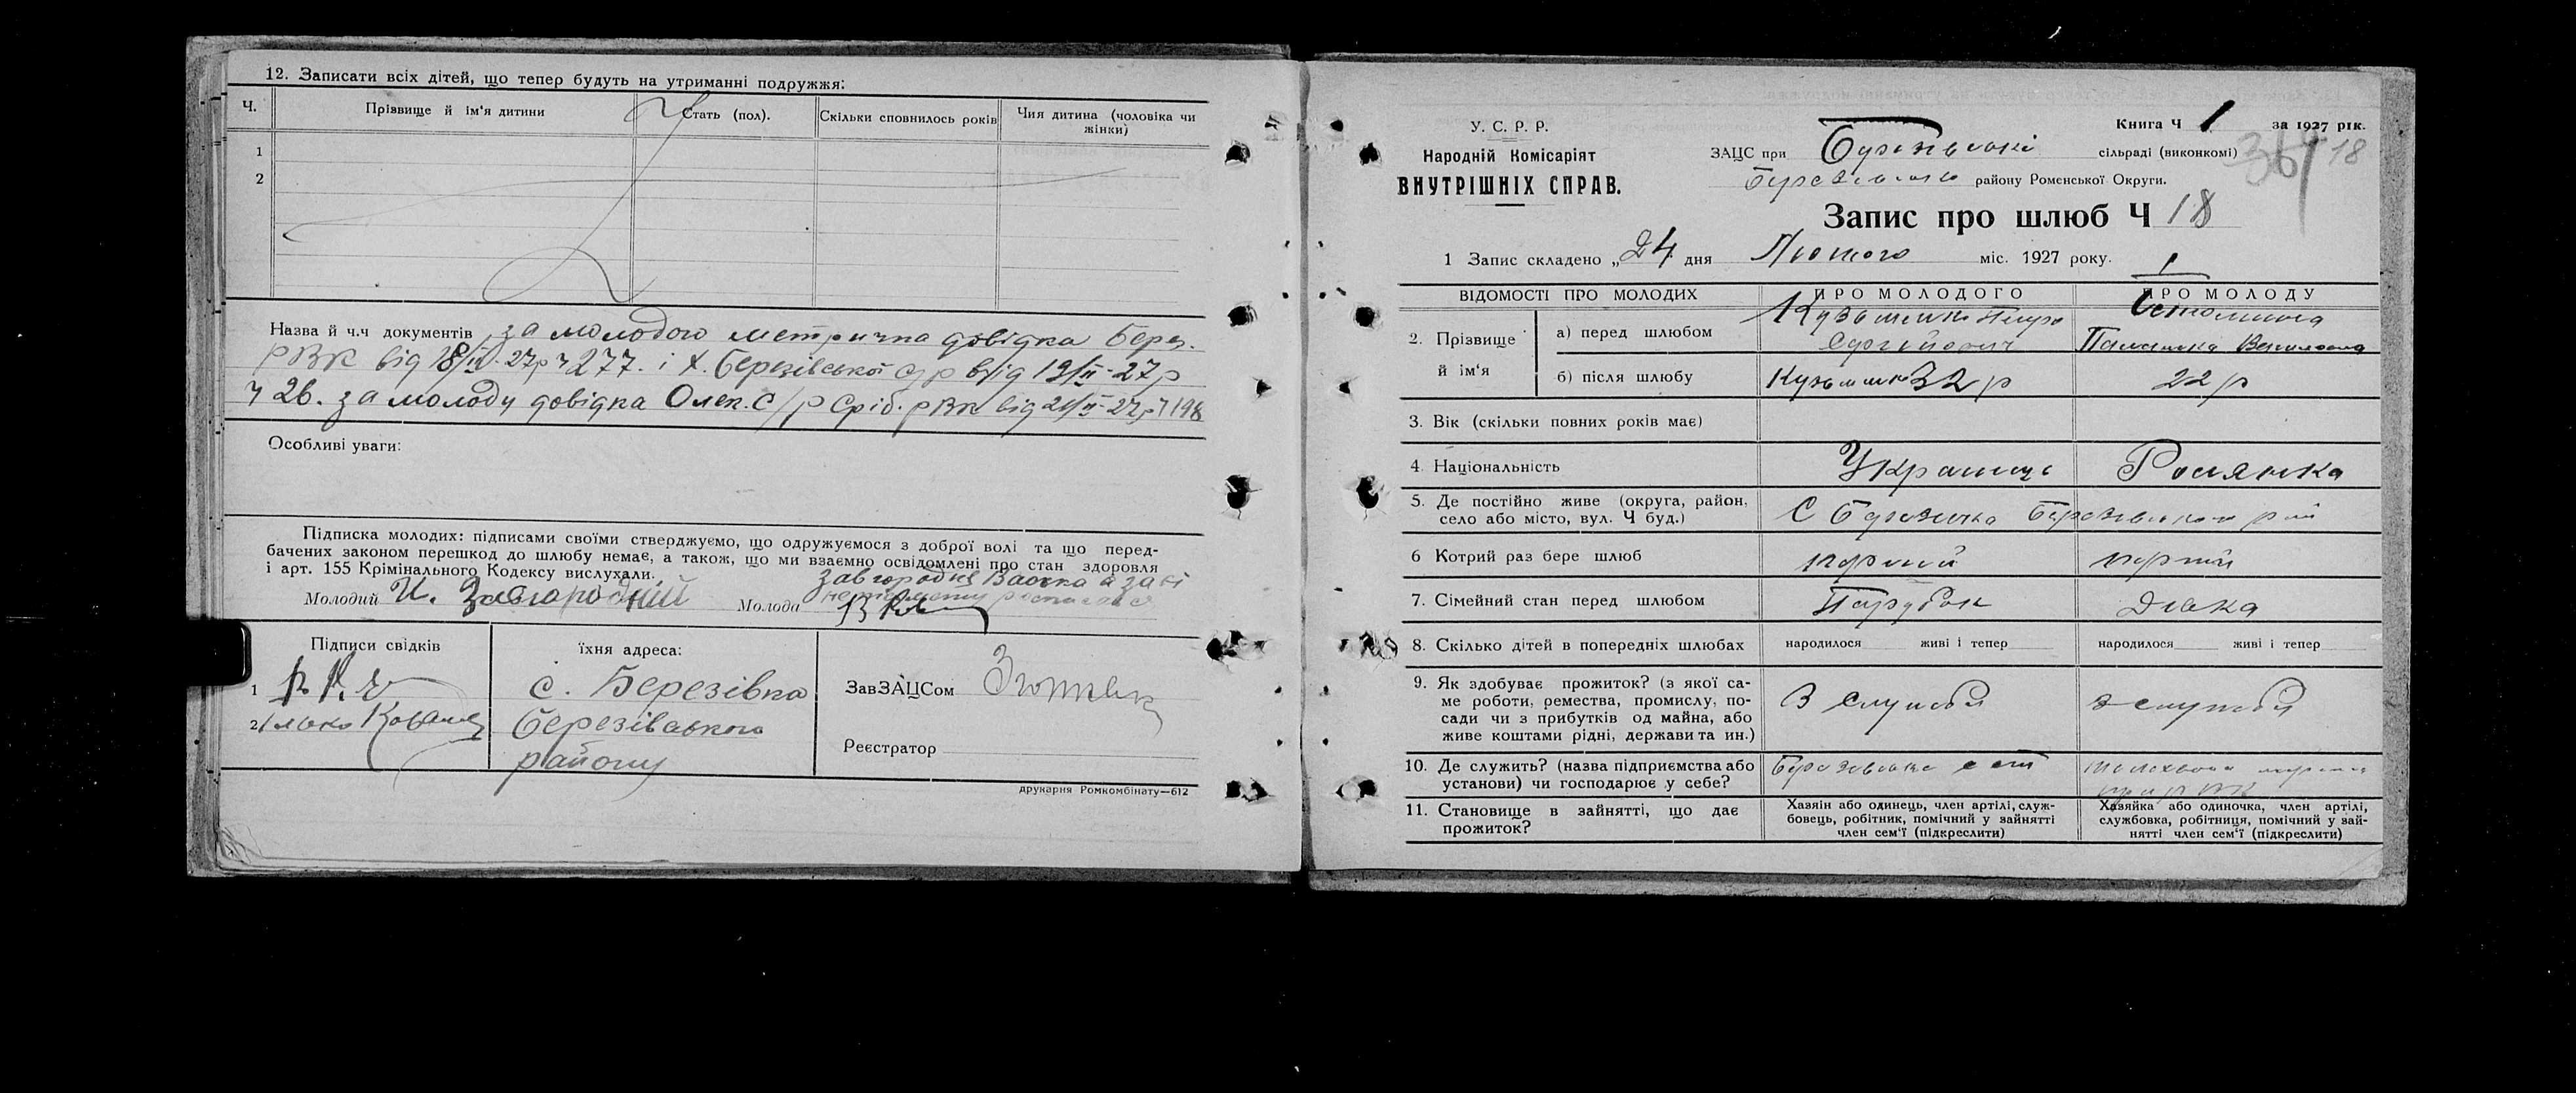 12. Записати всіх дітей, що тепер будуть на утриманні подружжя:
Ч. Прізвище й ім'я дитини Стать (пол). Скільки сповнилось років Чия дитина (чоловіка чи жінки)
1
2
Назва й ч.ч документів за молодого метрична довідка Берез.
РВК від 18/II-27р ч 277. і Х. Березівської с/р від 19/II-27р
ч 26. за молоду довідка Олек. с/р Сріб. РВК від 21/II-27р ч 198
Особливі уваги:
Підписка молодих: підписами своїми стверджуємо, що одружуємося з доброї волі та що перед-
бачених законом перешкод до шлюбу немає, а також, що ми взаємно освідомлені про стан здоровля
і арт. 155 Крімінального Кодексу вислухали.
Завгородня а за її
Молодий И. Завгородний Молода
Підписи свідків їхня адреса:
1 с. Березівка ЗавЗАЦСом
2 Березівського
району Реєстратор
друкарня Ромкомбінату—612
У. С. Р. Р.
Народній Комісаріят
ВНУТРІШНІХ СПРАВ.
Книга Ч 1 за 1927 рік.
ЗАЦС при сільраді (виконкомі) 18
району Роменської Округи.
Запис про шлюб Ч 18
1 Запис складено „24 дня Лютого міс. 1927 року.
1
ВІДОМОСТІ ПРО МОЛОДИХ ПРО МОЛОДОГО ПРО МОЛОДУ
2. Прізвище й ім'я а) перед шлюбом Кузьменко Петро
Сергійович Василівна
б) після шлюбу Кузьменко 32 р 22 р
3. Вік (скільки повних років має)
4. Національність Українець Росіянка
5. Де постійно живе (округа, район,
село або місто, вул. Ч буд.) С Березівка Березівського р-ну
6 Котрий раз бере шлюб перший перший
7. Сімейний стан перед шлюбом Парубок Дівка
8. Скілько дітей в попередніх шлюбах народилося живі і тепер народилося живі і тепер
9. Як здобуває прожиток? (з якої са-
ме роботи, ремества, промислу, по-
сади чи з прибутків од майна, або
живе коштами рідні, держави та ин.) З служби з служби
10. Де служить? (назва підприємства або
установи) чи господарює у себе?
11. Становище в зайнятті, що дає
прожиток?
Хазяін або одинець, член артілі, служ-
бовець, робітник, помічний у зайнятті
член сем'ї (підкреслити)
Хазяйка або одиночка, член артілі,
службовка, робітниця, помічний у зай-
нятті член сем'ї (підкреслити)